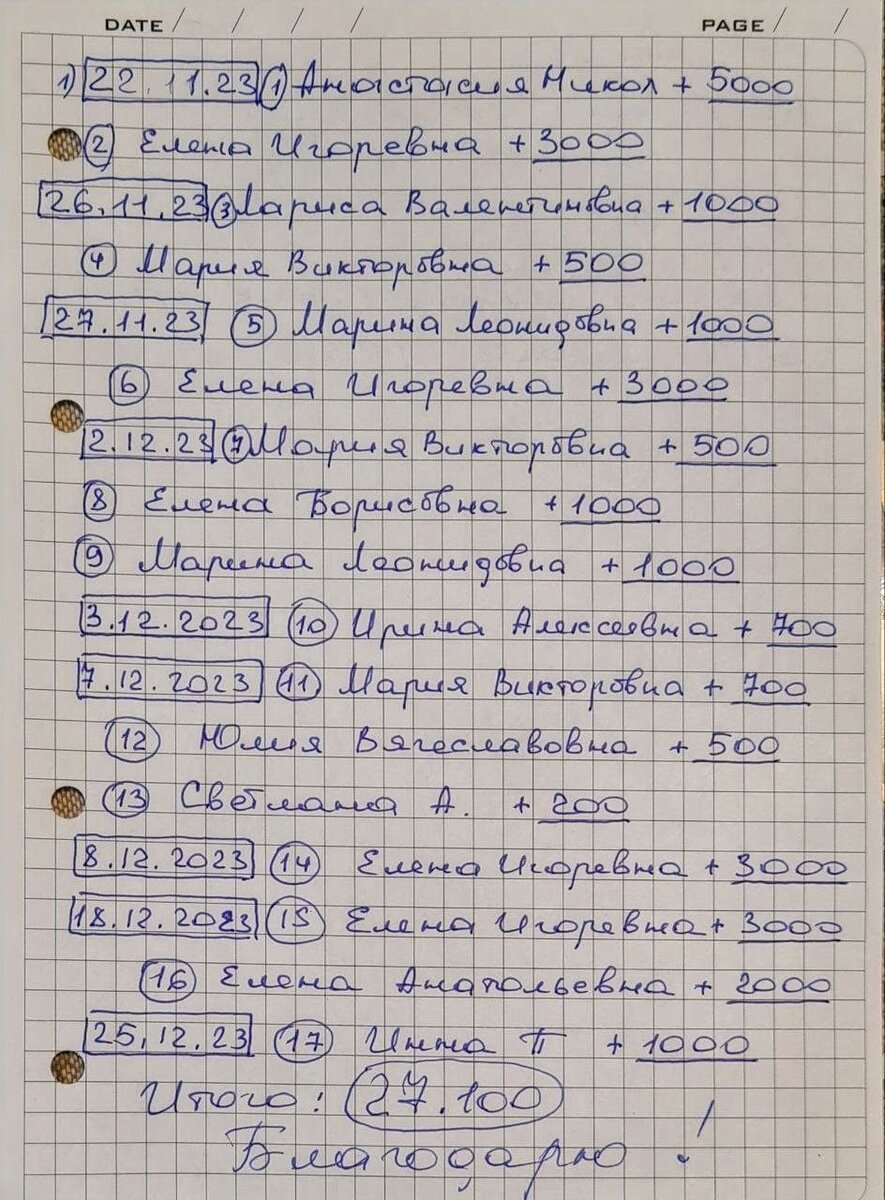 DATE / / / / PAGE / /
1) 22.11.23 1 Анастасия Никол + 5000
2 Елена Игоревна + 3000
26.11.23 3 Лариса Валентиновна + 1000
4 Мария Викторовна + 500
27.11.23 5 Марина Леонидовна + 1000
6 Елена Игоревна + 3000
2.12.23 7 Мария Викторовна + 500
8 Елена Борисовна + 1000
9 Марина Леонидовна + 1000
3.12.2023 10 Ирина Алексеевна + 700
7.12.2023 11 Мария Викторовна + 700
12 Юлия Вячеславовна + 500
13 Светлана А. + 200
8.12.2023 14 Елена Игоревна + 3000
18.12.2023 15 Елена Игоревна + 3000
16 Елена Анатольевна + 2000
25.12.23 17 Инна П + 1000
Итого: 27.100
Благодарю!